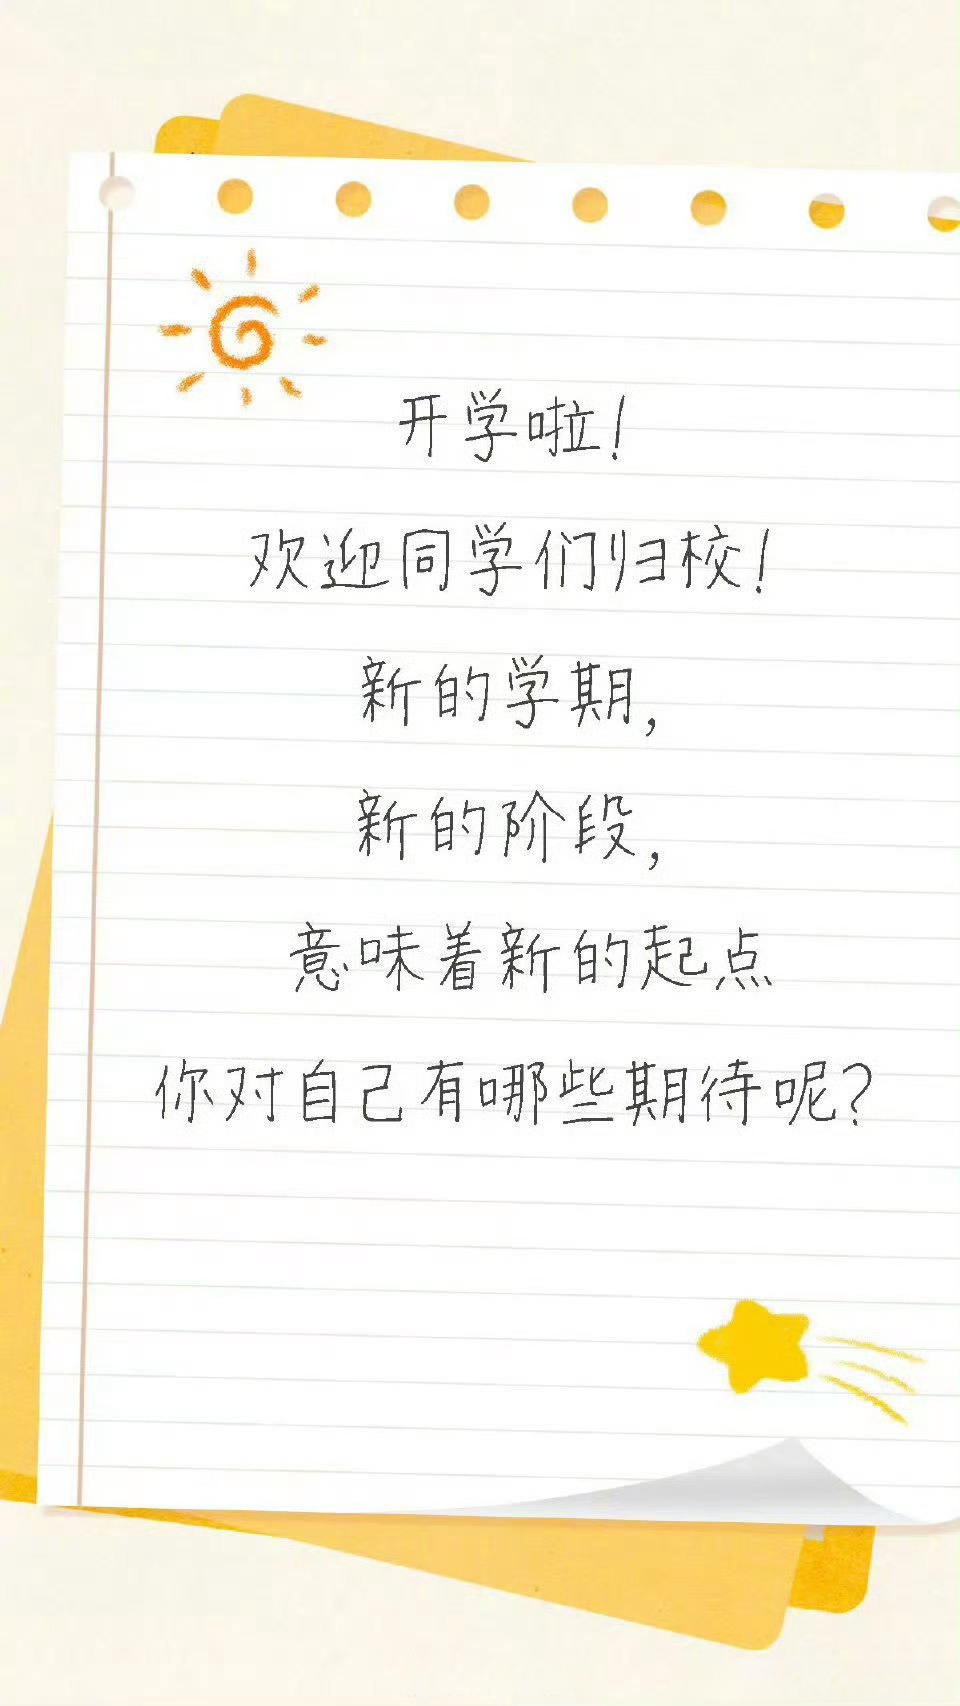 开学啦!
欢迎同学们归校!
新的学期,
新的阶段,
意味着新的起点
你对自己有哪些期待呢?